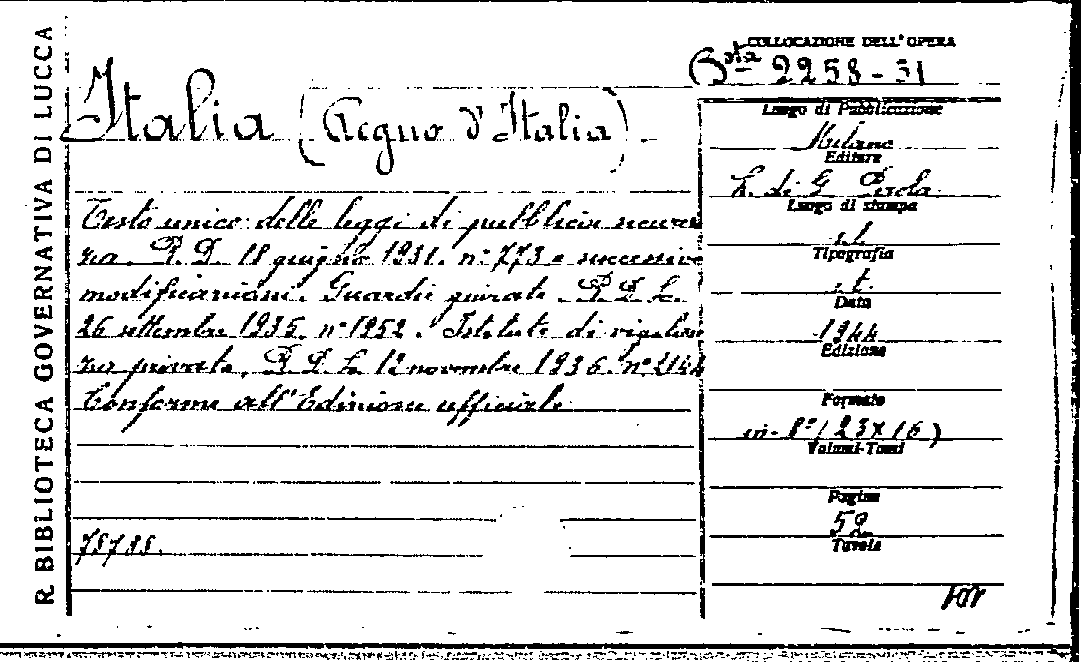 R. BIBLIOTECA GOVERNATIVA DI LUCCA
COLLOCAZIONE DELL'OPERA
Bta 2258-31
Italia (Regno d'Italia).
Testo unico delle leggi di pubblica sicurez
za. R. D. 18 giugno 1931. n° 773 e successive
modificazioni. Guardie private. R. D. L.
26 settembre 1935. n° 1952. Istituti di vigilan
za privata. R. D. L. 12 novembre 1936. n° 2144
Conforme all'Edizione ufficiale
Luogo di Pubblicazione
Milano
Editore
L. di G. Pirola
Luogo di stampa
s.l.
Tipografia
s.t.
Data
1944
Edizione
Formato
in-8° (23x16)
Volumi-Tomi
Pagine
52
Tavole